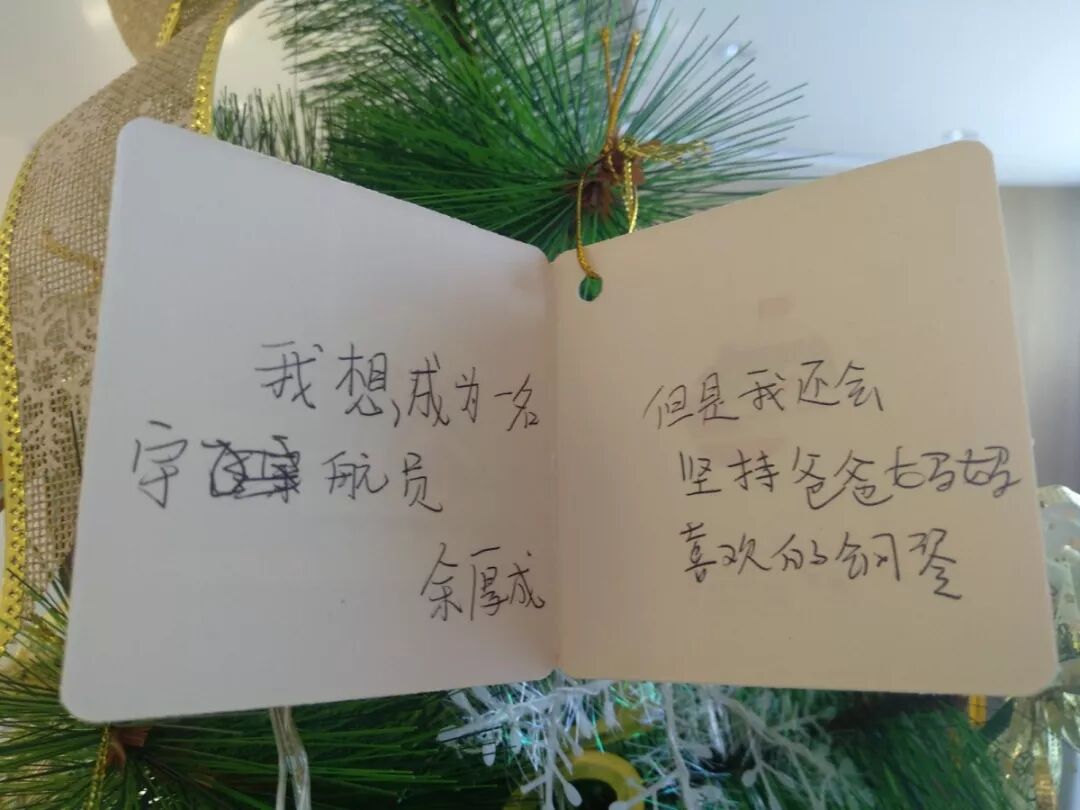 我想,成为一名
宇航员
余厚成
但是我还会
坚持爸爸妈妈
喜欢的钢琴